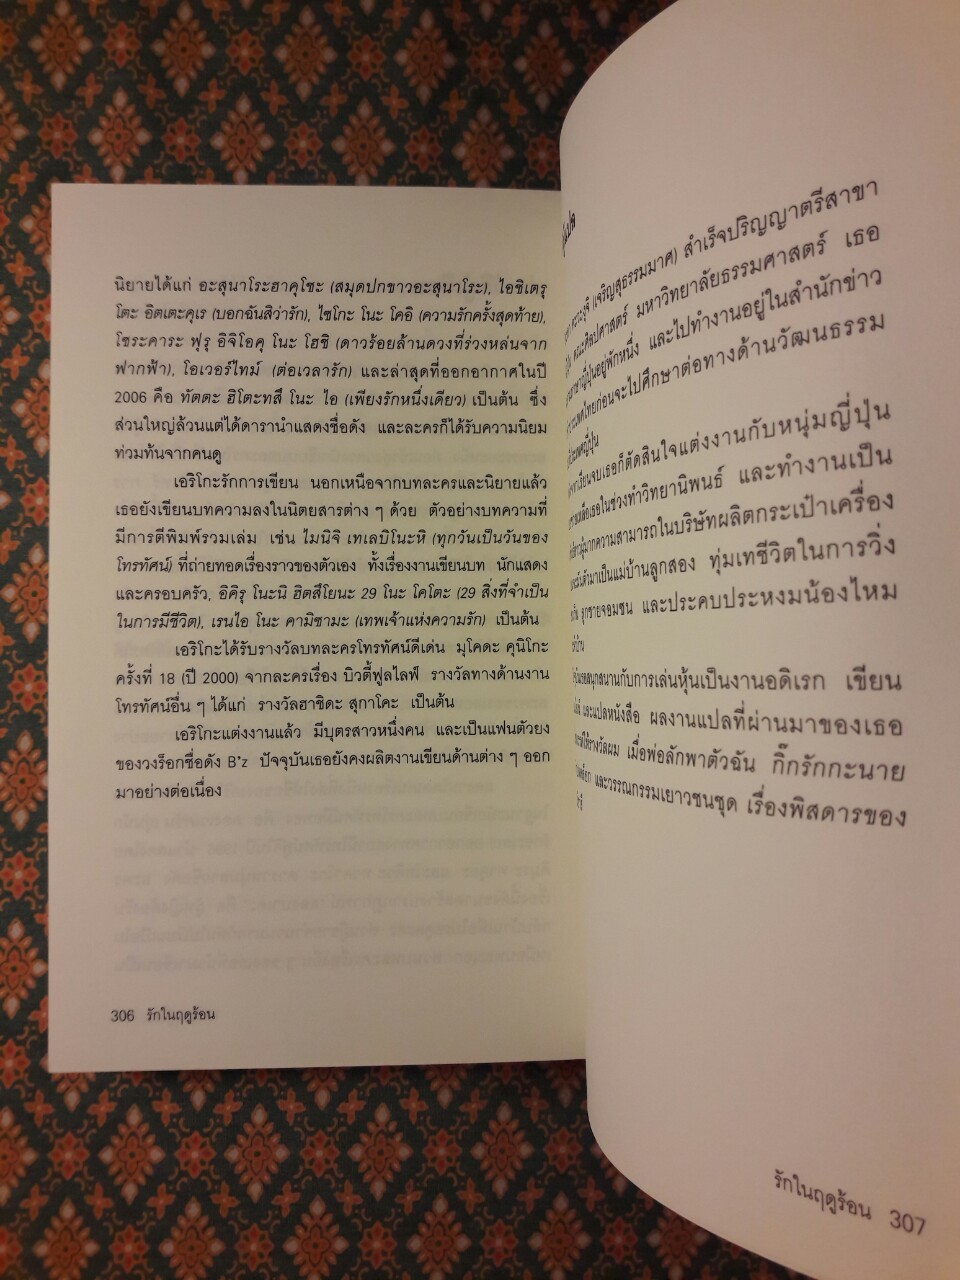 นิยายได้แก่ อะสุนาโระฮาคุโชะ (สมุดปกขาวอะสุนาโระ), ไอชิเตรุ
โตะ อิตเตะคุเร (บอกฉันสิว่ารัก), ไซโกะ โนะ โคอิ (ความรักครั้งสุดท้าย),
โซระคาระ ฟุรุ อิจิโอคุ โนะ โฮชิ (ดาวร้อยล้านดวงที่ร่วงหล่นจาก
ฟากฟ้า), โอเวอร์ไทม์ (ต่อเวลารัก) และล่าสุดที่ออกอากาศในปี
2006 คือ ทัตตะ ฮิโตะทสึ โนะ ไอ (เพียงรักหนึ่งเดียว) เป็นต้น ซึ่ง
ส่วนใหญ่ล้วนแต่ได้ดารานำแสดงชื่อดัง และละครก็ได้รับความนิยม
ท่วมท้นจากคนดู
เอริโกะรักการเขียน นอกเหนือจากบทละครและนิยายแล้ว
เธอยังเขียนบทความลงในนิตยสารต่าง ๆ ด้วย ตัวอย่างบทความที่
มีการตีพิมพ์รวมเล่ม เช่น ไมนิจิ เทเลบิโนะหิ (ทุกวันเป็นวันของ
โทรทัศน์) ที่ถ่ายทอดเรื่องราวของตัวเอง ทั้งเรื่องงานเขียนบท นักแสดง
และครอบครัว, อิคิรุ โนะนิ ฮิตสึโยนะ 29 โนะ โคโตะ (29 สิ่งที่จำเป็น
ในการมีชีวิต), เรนไอ โนะ คามิซามะ (เทพเจ้าแห่งความรัก) เป็นต้น
เอริโกะได้รับรางวัลบทละครโทรทัศน์ดีเด่น มุโคดะ คุนิโกะ
ครั้งที่ 18 (ปี 2000) จากละครเรื่อง บิวตี้ฟูลไลฟ์ รางวัลทางด้านงาน
โทรทัศน์อื่น ๆ ได้แก่ รางวัลฮาชิดะ สุกาโคะ เป็นต้น
เอริโกะแต่งงานแล้ว มีบุตรสาวหนึ่งคน และเป็นแฟนตัวยง
ของวงร็อกชื่อดัง B'z ปัจจุบันเธอยังคงผลิตงานเขียนด้านต่าง ๆ ออก
มาอย่างต่อเนื่อง
306 รักในฤดูร้อน
(เจริญสุธรรมมาศ) สำเร็จปริญญาตรีสาขา
คณะศิลปศาสตร์ มหาวิทยาลัยธรรมศาสตร์ เธอ
ญี่ปุ่นอยู่พักหนึ่ง และไปทำงานอยู่ในสำนักข่าว
ไทยก่อนจะไปศึกษาต่อทางด้านวัฒนธรรม
ประเทศญี่ปุ่น
เรียนจบเธอก็ตัดสินใจแต่งงานกับหนุ่มญี่ปุ่น
เธอในช่วงทำวิทยานิพนธ์ และทำงานเป็น
ผู้มากความสามารถในบริษัทผลิตกระเป๋าเครื่อง
มาเป็นแม่บ้านลูกสอง ทุ่มเทชีวิตในการวิ่ง
ลูกชายจอมซน และประคบประหงมน้องไหม
สนุกสนานกับการเล่นหุ้นเป็นงานอดิเรก เขียน
และแปลหนังสือ ผลงานแปลที่ผ่านมาของเธอ
ให้รางวัลผม เมื่อพ่อลักพาตัวฉัน กิ๊กรักกะนาย
และวรรณกรรมเยาวชนชุด เรื่องพิสดารของ
รักในฤดูร้อน 307